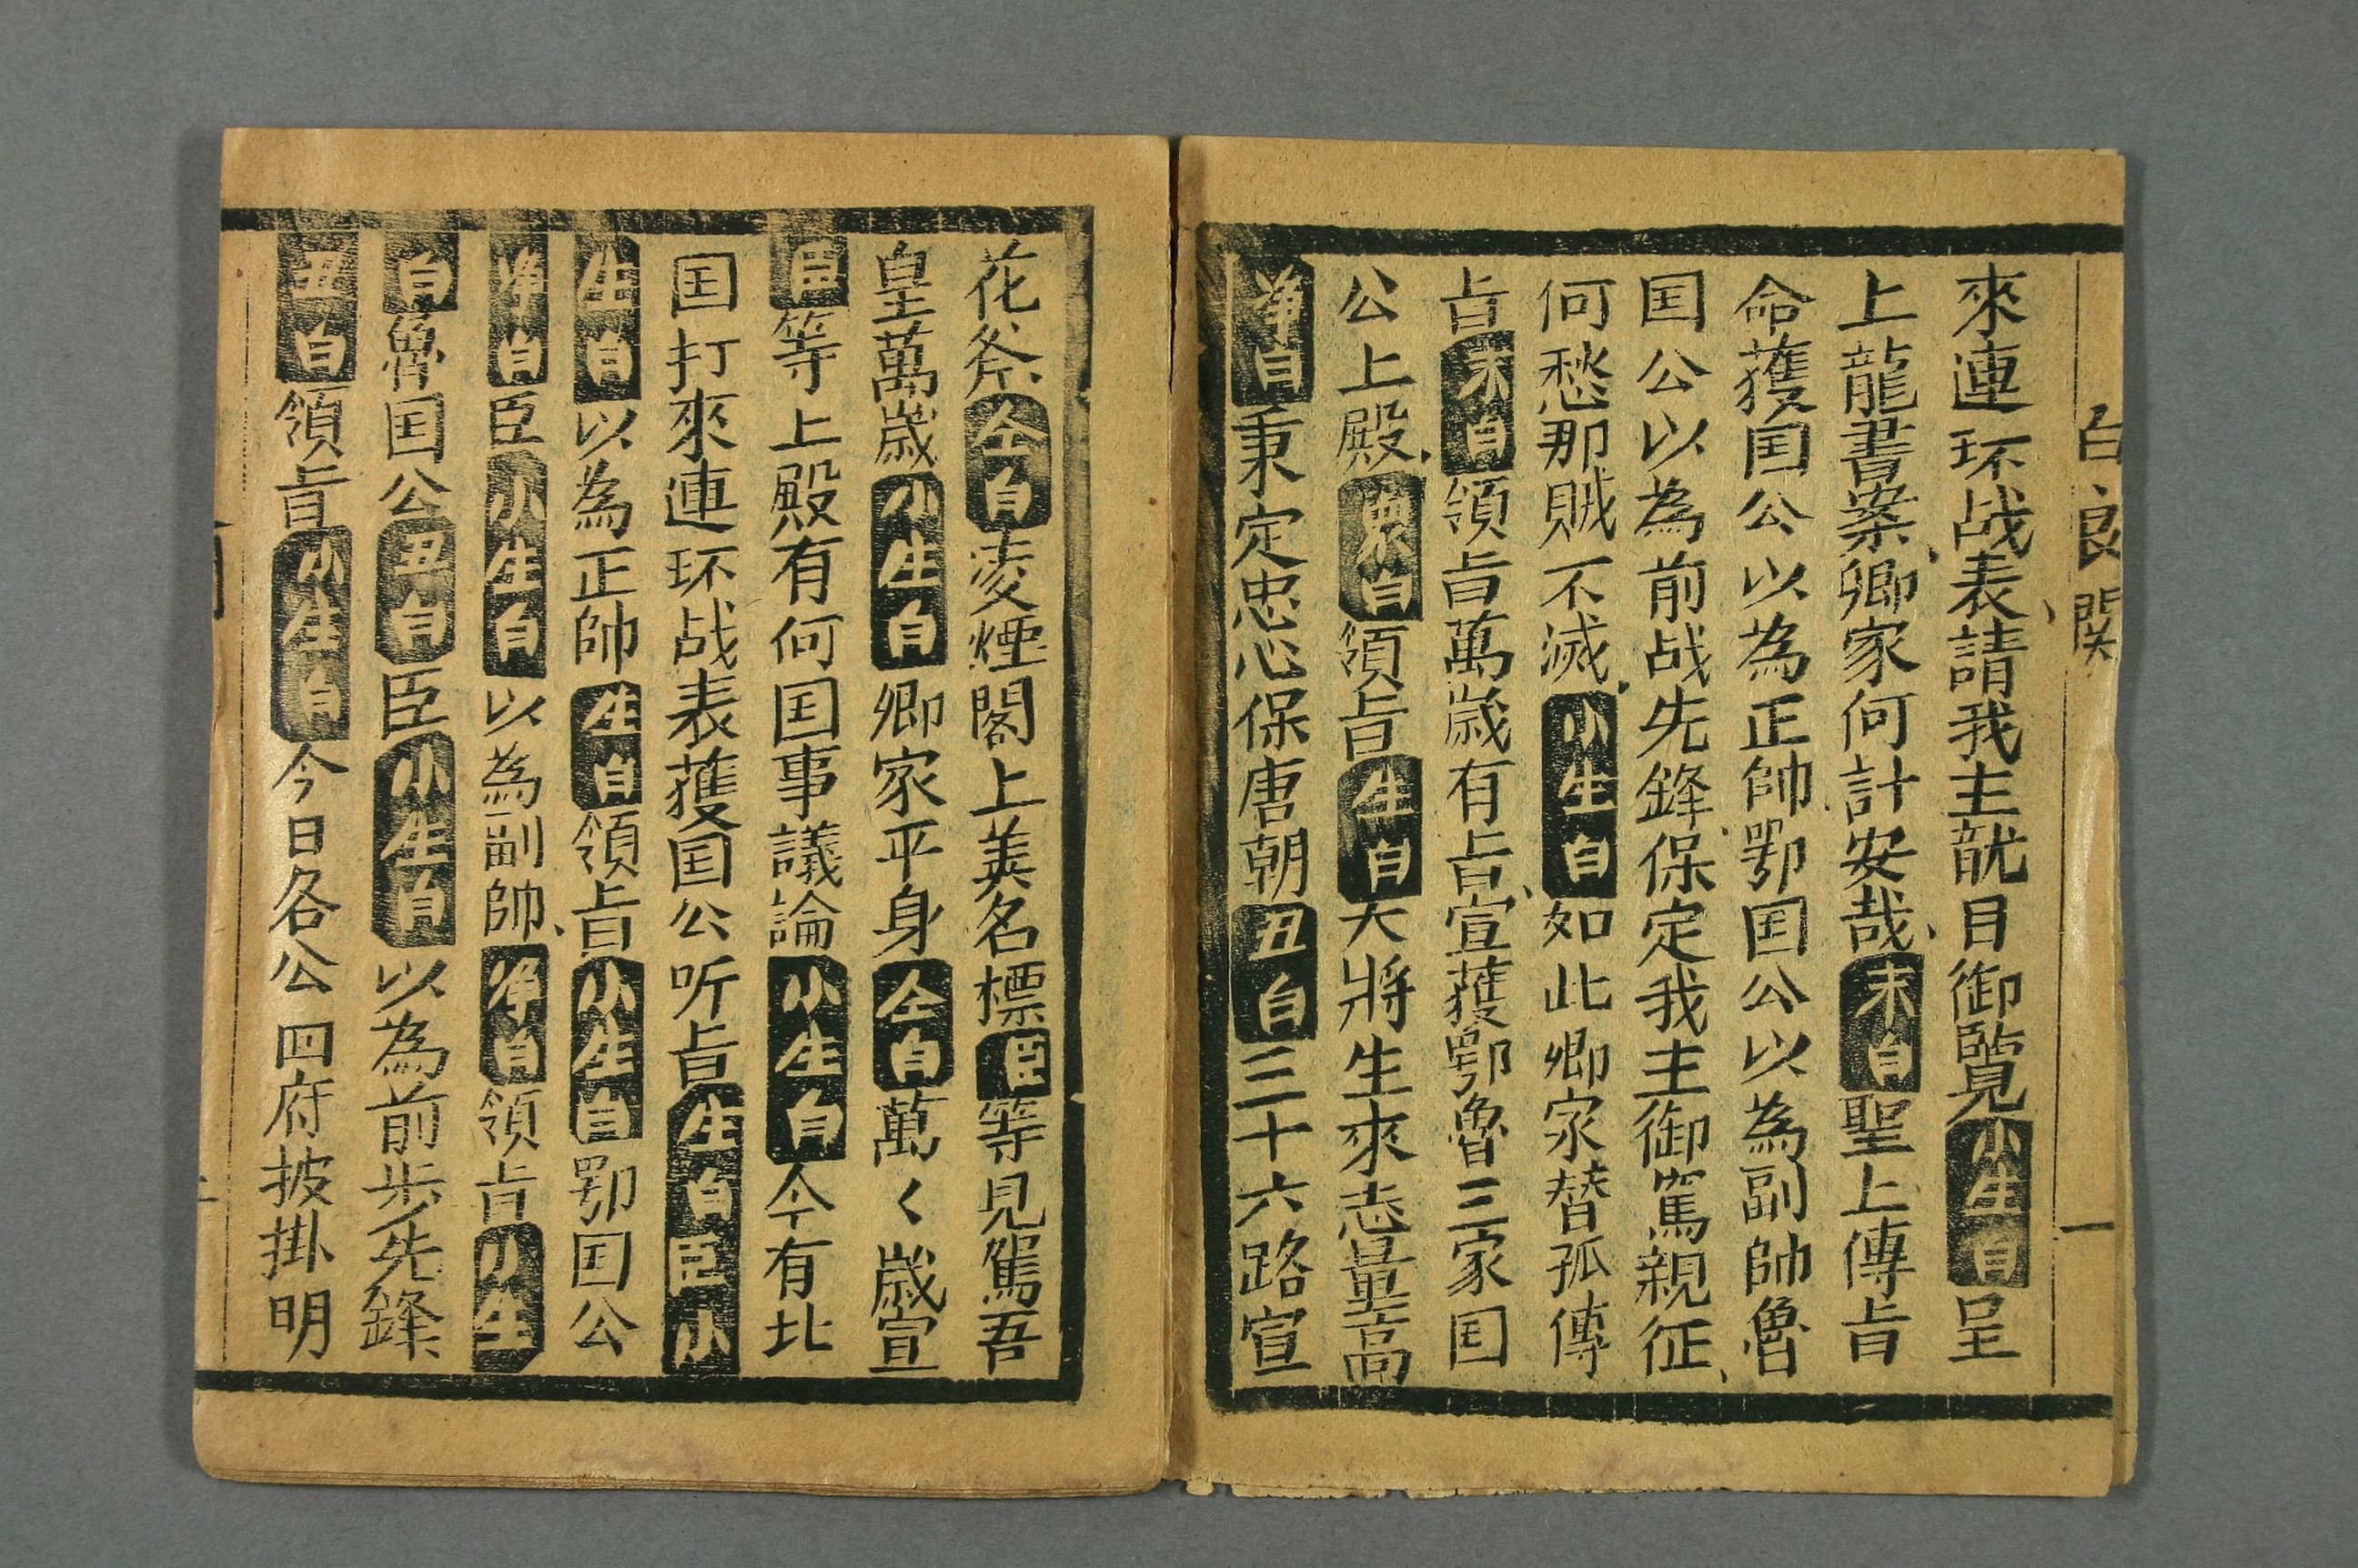 白良関 一
來連环战表請我主龍目御覧小生白呈
上龍書案卿家何計安哉末白聖上傳旨
命獲国公以為正帥鄂国公以為副帥魯
国公以為前战先鋒保定我主御篤親征
何愁那賊不滅小生白如此卿家替孤傳
旨末白領旨萬歲有旨宣獲鄂魯三家国
公上殿衆白領旨生白大將生來志量高
净白秉定忠心保唐朝丑白三十六路宣
花斧仝白凌煙閣上美名標臣等見篤吾
皇萬歲小生白卿家平身仝白萬々歲宣
臣等上殿有何国事議論小生白今有北
国打來連环战表獲国公听旨生白臣小
生白以為正帥生白領旨小生白鄂国公
净白臣小生白以為副帥净白領旨小生
白魯国公丑白臣小生白以為前步先鋒
丑白領旨小生白今日各公四府披掛明